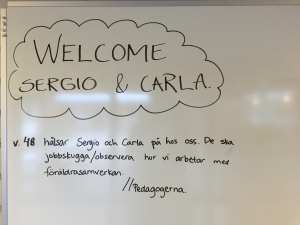 WELCOME
SERGIO & CARLA.
v. 48 hälsar Sergio och Carla på hos oss. De ska
jobbskugga/observera hur vi arbetar med
föräldrasamverkan.
//Pedagogerna.